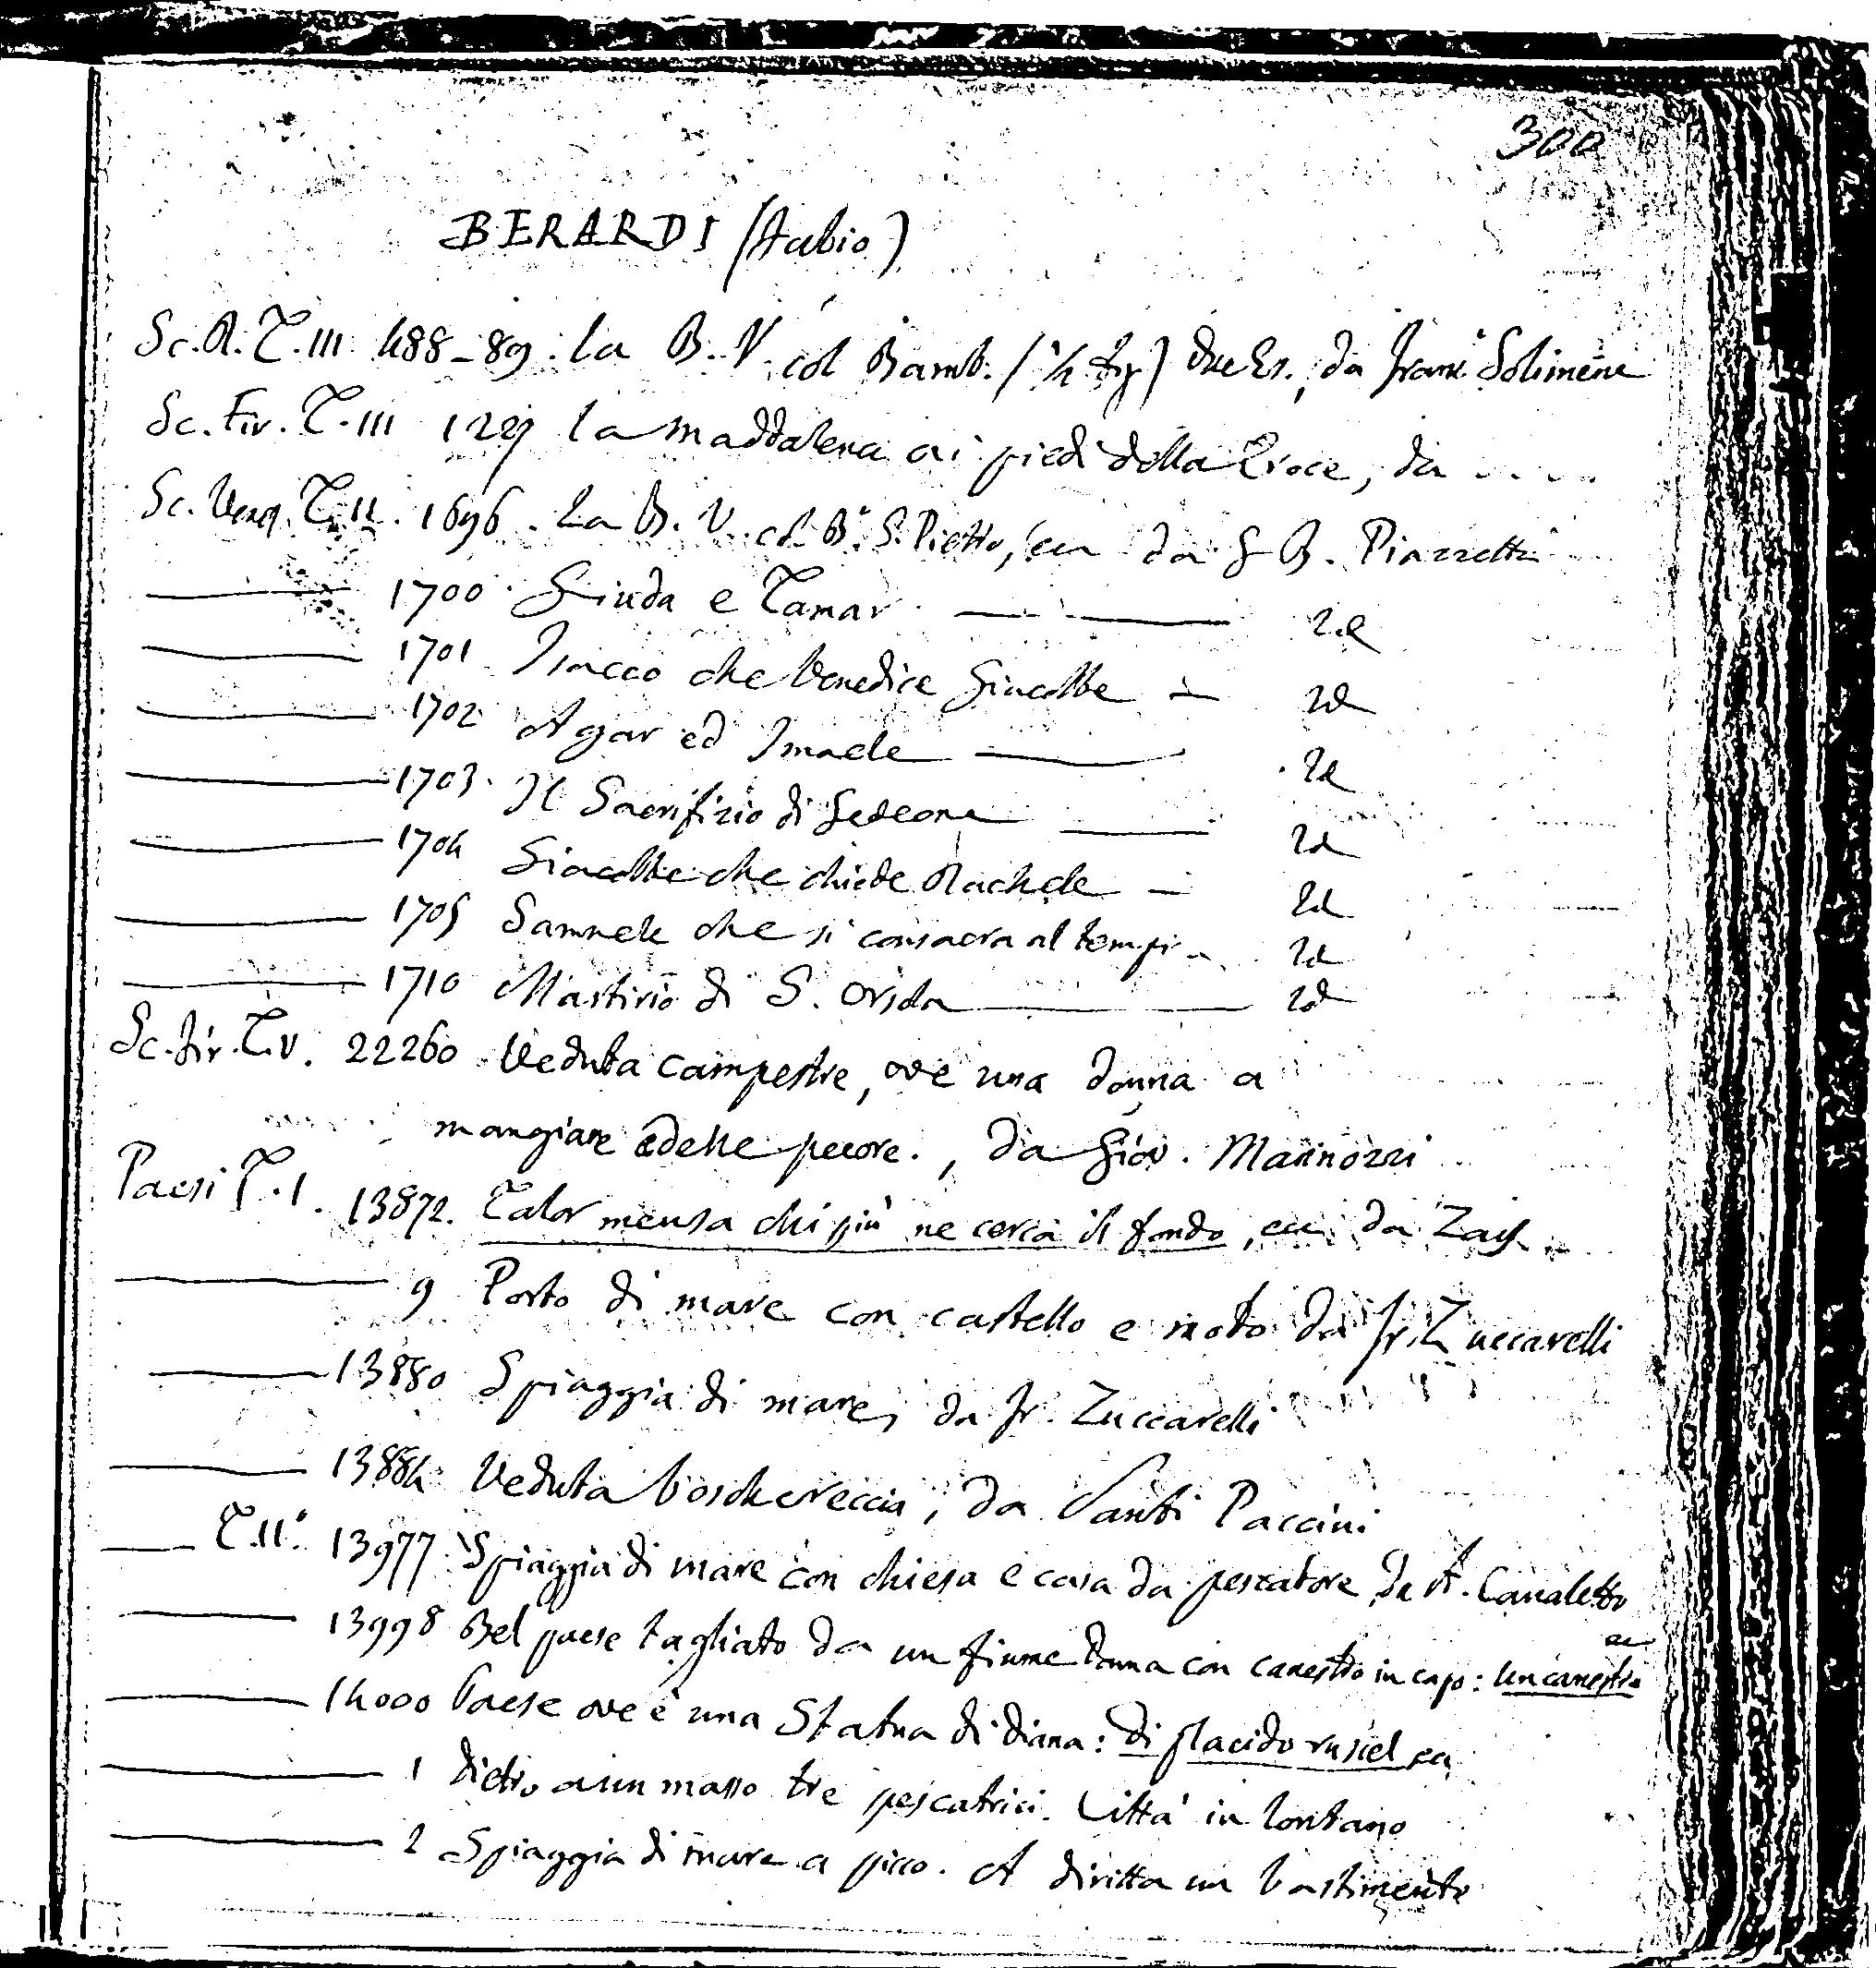 300
BERARDI (Fabio)
Sc. R. T. III 488-89. la B. V. col Bamb. (½ fig) due Es., da Franc° Solimene
Sc. Fir. T. III 1229 la Maddalena ai piedi della Croce, da ....
Sc. Venez. T. II. 1696. La B. V. col B° S. Pietro, ecc da G B. Piazzetta
1700. Giuda e Tamar. id
1701 Isacco che benedice Giacobbe — id
1702 Agar ed Ismaele id
1703. Il Sacrifizio di Gedeone id
1704 Giacobbe che chiede Rachele — id
1705 Samuele che si consacra al tempio id
1710 Martirio di S. Orsola id
Sc. Fir. T. V. 22260 Veduta campestre, ove una donna a
mangiare delle pecore., da Giov. Mannozzi
Paesi T. I. 13872. Talor mensa chi più ne cerca il fondo, ecc da Zais
9 Porto di mare con castello e molo da Fr. Zuccarelli
13880 Spiaggia di mare, da Fr. Zuccarelli
13884 Veduta boschereccia, da Santi Paccini
T. II° 13977. Spiaggia di mare con chiesa e casa da pescatore da A. Canaletto
13998 Bel paese tagliato da un fiume Donna con canestro in capo: Un canestro ec
14000 Paese ove è una Statua di Diana: di placido ruscel ec
1 Dietro a un masso tre pescatrici. Città in lontano
2 Spiaggia di mare a picco. A diritta un bastimento